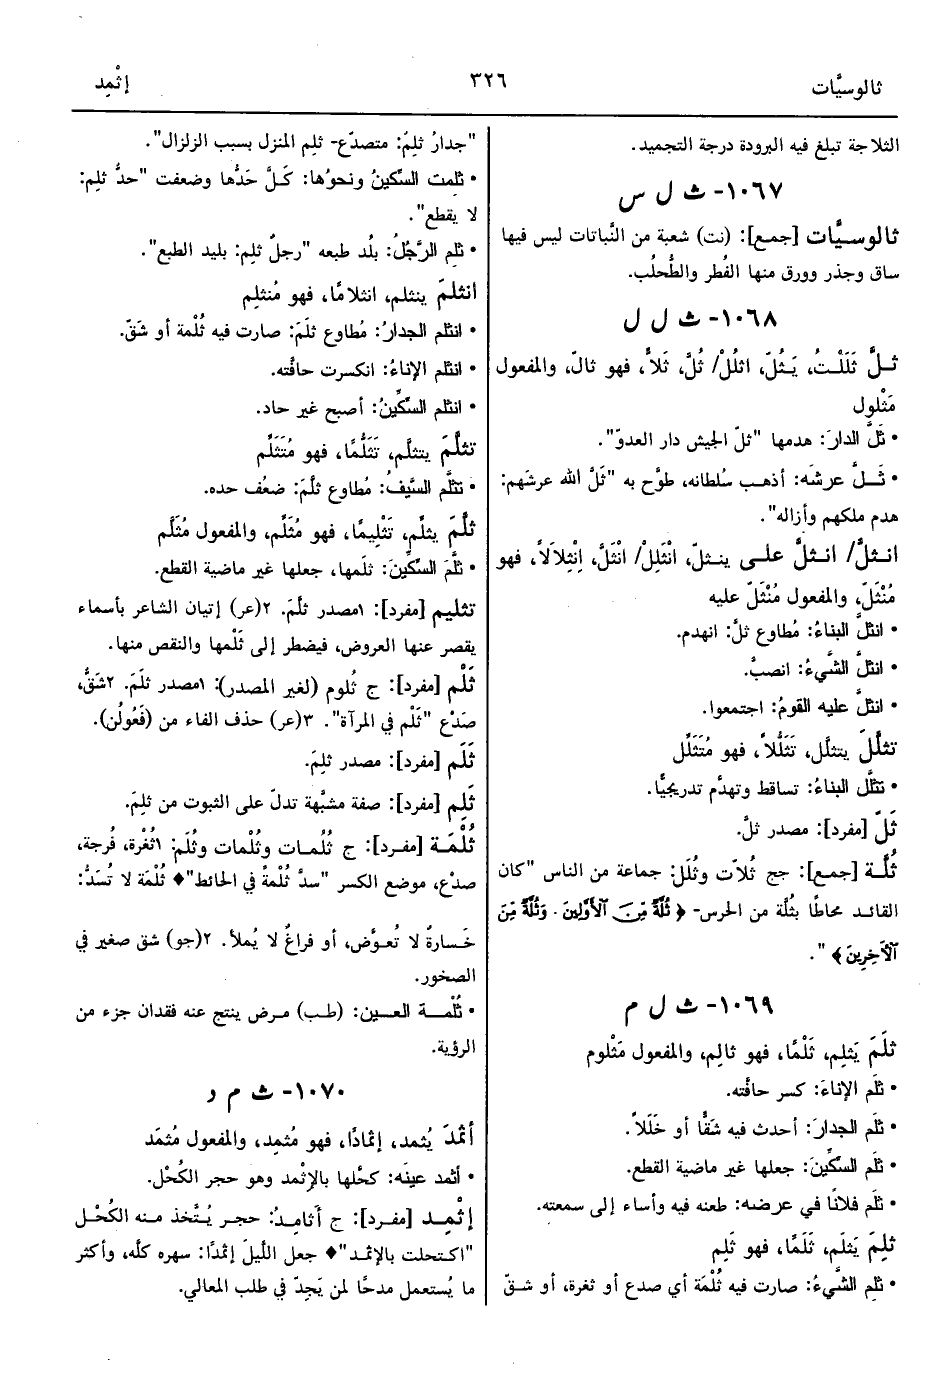 ثالوسيَّات
٣٢٦
إثْمِد
الثلاجة تبلغ فيه البرودة درجة التجميد.
١٠٦٧- ث ل س
ثالوسـيَّات [جمع]: (نت) شعبة من النَّباتات ليس فيها
ساق وجذر وورق منها الفُطر والطُّحلُب.
١٠٦٨- ث ل ل
ثـلَّ ثَلَلْـتُ، يَـثُلّ، اثلُلْ/ ثُلَّ، ثَلاًّ، فهو ثالّ، والمفعول
مَثْلول
• ثَلَّ الدارَ: هدمها "ثلّ الجيش دار العدوّ".
• ثَـلَّ عرشَه: أذهـب سُلطانه، طوَّح به "ثَلَّ الله عرشَهم:
هدم ملكهم وأزاله".
انـثلَّ/ انـثلَّ علـى ينـثلّ، انْثَلِلْ/ انْثَلَّ، اِنْثِلالاً، فهو
مُنْثَلّ، والمفعول مُنْثَلّ عليه
• انثلَّ البناءُ: مُطاوع ثلَّ: انهدم.
• انثلَّ الشَّيءُ: انصبَّ.
• انثلَّ عليه القومُ: اجتمعوا.
تثلَّلَ يتثلَّل، تَثَلُّلاً، فهو مُتَثَلِّل
• تثلَّل البناءُ: تساقط وتهدَّم تدريجيًّا.
ثَلّ [مفرد]: مصدر ثلَّ.
ثُلَّـة [جمع]: جج ثُلاّت وثُلَل: جماعة من الناس "كان
القائـد محاطًا بثُلَّة من الحرس- ﴿ ثُلَّةٌ مِّنَ ٱلْأَوَّلِينَ . وَثُلَّةٌ مِّنَ
ٱلْآخِرِينَ ﴾ ".
١٠٦٩- ث ل م
ثلَمَ يَثلِم، ثَلْمًا، فهو ثالِم، والمفعول مَثْلوم
• ثلَم الإناءَ: كسر حافَّته.
• ثلَم الجدارَ: أحدث فيه شَقًّا أو خَلَلاً.
• ثلَم السِّكِّينَ: جعلها غير ماضية القطع.
• ثلَم فلانًا في عرضه: طعنه فيه وأساء إلى سمعته.
ثلِمَ يَثلَم، ثَلَمًا، فهو ثَلِم
• ثلِم الشَّيءُ: صارت فيه ثُلْمَة أي صدع أو ثغرة، أو شـقّ
"جدارُ ثلِمٌ: متصدّع- ثلِم المنزل بسبب الزلزال".
• ثلِمت السِّكِّينُ ونحوُها: كَـلَّ حَدُّها وضعفت "حدٌّ ثلِم:
لا يقطع".
• ثلِم الرَّجُلُ: بلُد طبعه "رجلٌ ثلِم: بليد الطبع".
انثلمَ ينثلم، انثلامًا، فهو مُنثلِم
• انثلم الجدارُ: مُطاوع ثلَمَ: صارت فيه ثُلْمة أو شَقّ.
• انثلم الإناءُ: انكسرت حافَّته.
• انثلم السِّكِّينُ: أصبح غير حاد.
تثلَّمَ يتثلَّم، تَثَلُّمًا، فهو مُتَثَلِّم
• تثلَّم السَّيفُ: مُطاوع ثلَّمَ: ضعُف حده.
ثلَّمَ يثلِّم، تَثْلِيمًا، فهو مُثَلِّم، والمفعول مُثَلَّم
• ثلَّمَ السِّكِّينَ: ثلَمها، جعلها غير ماضية القطع.
تثليم [مفرد]: ١مصدر ثلَّمَ. ٢(عر) إتيان الشاعر بأسماء
يقصر عنها العروض، فيضطر إلى ثَلْمها والنقص منها.
ثَلْم [مفرد]: ج ثُلوم (لغير المصدر): ١مصدر ثلَمَ. ٢شَقٌّ،
صَدْع "ثَلْم في المرآة". ٣(عر) حذف الفاء من (فَعُولُن).
ثَلَم [مفرد]: مصدر ثلِمَ.
ثَلِم [مفرد]: صفة مشبَّهة تدلّ على الثبوت من ثلِمَ.
ثُلْمَـة [مفـرد]: ج ثُلُمـات وثُلْمات وثُلَم: ١ثُغْرة، فُرجة،
صدْع، موضع الكسر "سدَّ ثُلْمةً في الحائط"♦ ثُلْمَة لا تُسَدُّ:
خَسـارةٌ لا تُعـوَّض، أو فراغٌ لا يُملأ. ٢(جو) شق صغير في
الصخور.
• ثُلْمَـة العـين: (طب) مـرض ينتج عنه فقدان جزء من
الرؤية.
١٠٧٠- ث م د
أثمدَ يُثمد، إثمادًا، فهو مُثمِد، والمفعول مُثمَد
• أثمد عينَه: كحَّلها بالإثْمد وهو حجر الكُحْل.
إثْمِـد [مفـرد]: ج أثامِـدُ: حجـر يُـتَّخذ مـنه الكُحْـل
"اكـتحلت بالإثمـد"♦ جعل اللَّيلَ إثْمدًا: سهره كلَّه، وأكثر
ما يُستعمل مدحًا لمن يَجِدّ في طلب المعالي.